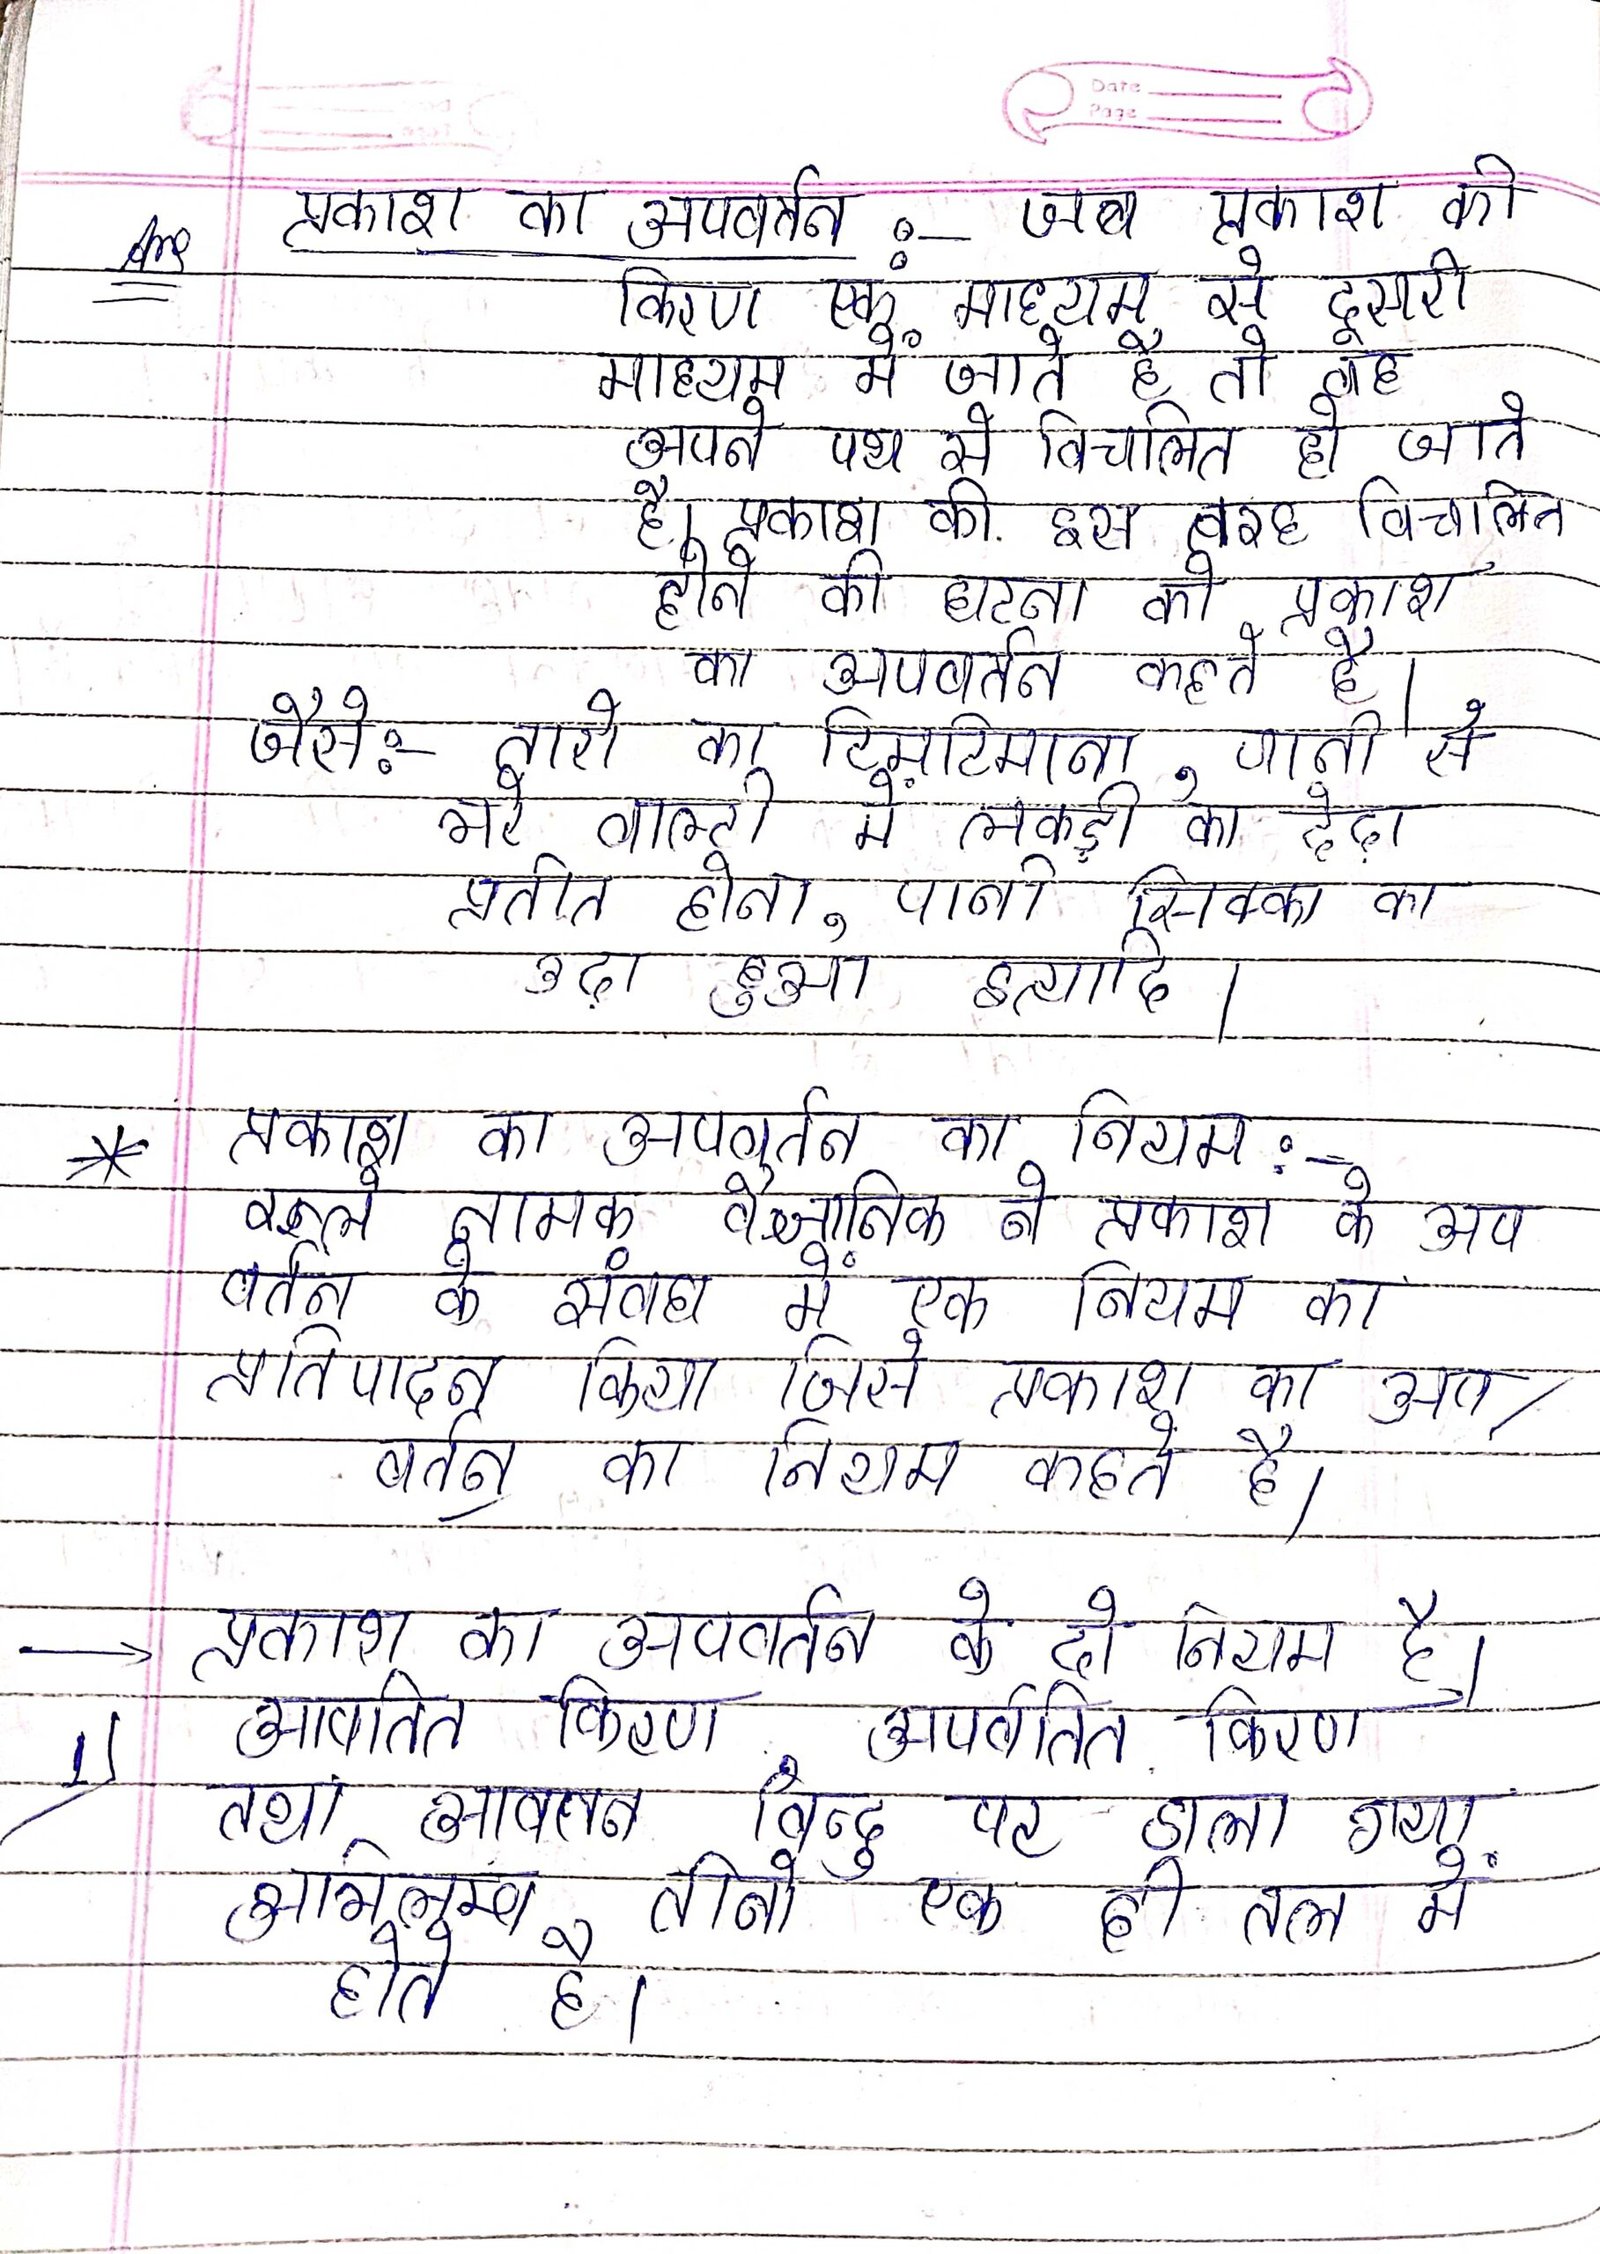 Date
Page
Ans प्रकाश का अपवर्तन :- जब प्रकाश की
किरण एक माध्यम से दूसरी
माध्यम में जाते है तो वह
अपने पथ से विचलित हो जाते
है। प्रकाश की इस तरह विचलित
होने की घटना को प्रकाश
का अपवर्तन कहते है।
जैसे:- तारो का टिमटिमाना, पानी से
भरे बाल्टी में लकड़ी का टेढ़ा
प्रतीत होना, पानी सिक्का का
उठा हुआ इत्यादि।
* प्रकाश का अपवर्तन का नियम :-
नामक वैज्ञानिक ने प्रकाश के अप
वर्तन के संबंध में एक नियम का
प्रतिपादन किया जिसे प्रकाश का अप
वर्तन का नियम कहते है।
→ प्रकाश का अपवर्तन के दो नियम है।
1) आपतित किरण, अपवर्तित किरण
तथा आपतन बिन्दु पर डाला गया
अभिलम्ब तीनों एक ही तल में
होते है।